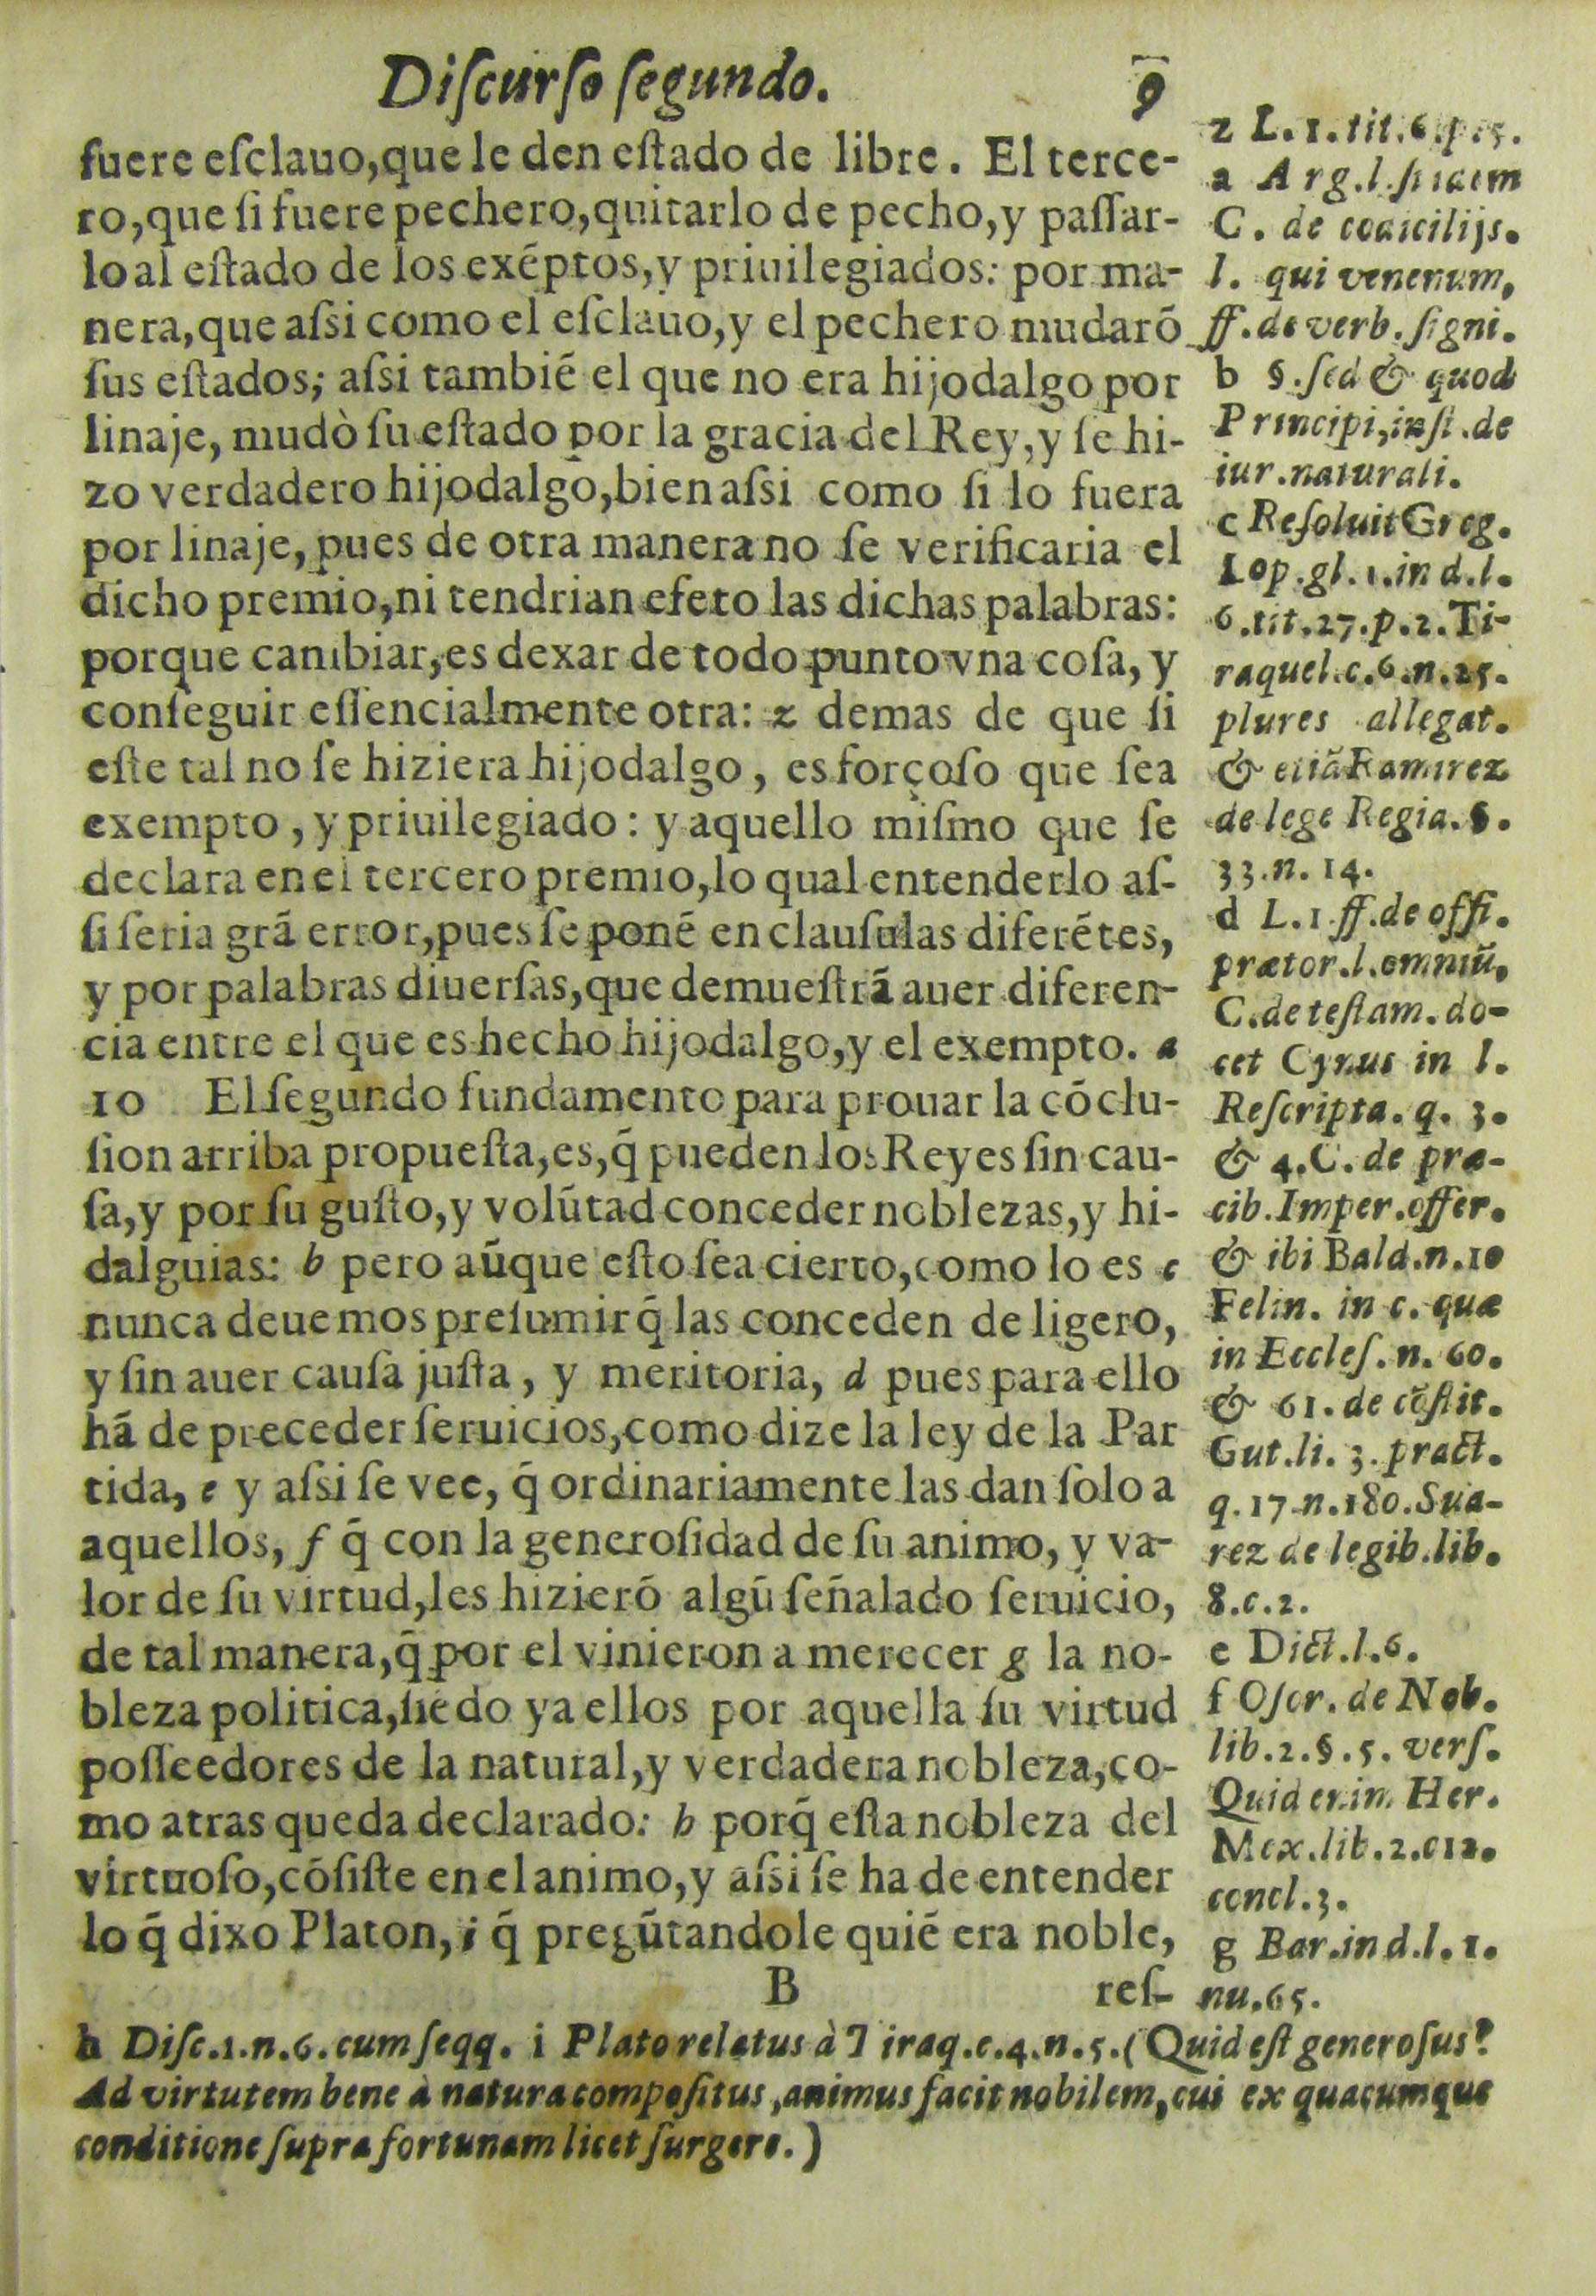 Diſcurſo ſegundo. 9
fuere eſclauo,que le den eſtado de libre. El terce-
ro,que ſi fuere pechero,quitarlo de pecho,y paſſar-
lo al eſtado de los exẽptos,y priuilegiados: por ma-
nera,que aſsi como el eſclauo,y el pechero mudarõ
ſus eſtados; aſsi tambiẽ el que no era hijodalgo por
linaje, mudò ſu eſtado por la gracia del Rey,y ſe hi-
zo verdadero hijodalgo,bien aſsi como ſi lo fuera
por linaje, pues de otra manera no ſe verificaria el
dicho premio,ni tendrian efeto las dichas palabras:
porque cambiar,es dexar de todo punto vna coſa, y
conſeguir eſſencialmente otra: z demas de que ſi
eſte tal no ſe hiziera hijodalgo, es forçoſo que ſea
exempto, y priuilegiado: y aquello miſmo que ſe
declara en el tercero premio,lo qual entenderlo aſ-
ſi ſeria grã error,pues ſe ponẽ en clauſulas diferẽtes,
y por palabras diuerſas,que demueſtrã auer diferen-
cia entre el que es hecho hijodalgo,y el exempto. a
10 El ſegundo fundamento para prouar la cõclu-
ſion arriba propueſta,es,q̃ pueden los Reyes ſin cau-
ſa,y por ſu guſto,y volũtad conceder noblezas,y hi-
dalguias: b pero aũque eſto ſea cierto,como lo es c
nunca deuemos preſumir q̃ las conceden de ligero,
y ſin auer cauſa juſta, y meritoria, d pues para ello
hã de preceder ſeruicios,como dize la ley de la Par
tida, e y aſsi ſe vee, q̃ ordinariamente las dan ſolo a
aquellos, f q̃ con la generoſidad de ſu animo, y va-
lor de ſu virtud,les hizierõ algũ ſeñalado ſeruicio,
de tal manera,q̃ por el vinieron a merecer g la no-
bleza politica,ſiẽdo ya ellos por aquella ſu virtud
poſſeedores de la natural,y verdadera nobleza,co-
mo atras queda declarado: h porq̃ eſta nobleza del
virtuoſo,cõſiſte en el animo,y aſsi ſe ha de entender
lo q̃ dixo Platon, i q̃ pregũtandole quiẽ era noble,
B reſ-
z L.1.tit.6.p.5.
a Arg.l.ſi idem
C. de codicilijs.
l. qui venenum,
ff.de verb.ſigni.
b §.ſed & quod
Principi,inſt.de
iur.naturali.
c Reſoluit Greg.
Lop.gl.1.in d.l.
6.tit.27.p.2.Ti-
raquel.c.6.n.25.
plures allegat.
& etiã Ramirez
de lege Regia.§.
33.n.14.
d L.1.ff.de offi.
prætor.l.omniũ,
C.de teſtam.do-
cet Cynus in l.
Reſcripta. q. 3.
& 4.C. de præ-
cib.Imper.offer.
& ibi Bald.n.10
Felin. in c. quæ
in Eccleſ.n.60.
& 61.de cõſtit.
Gut.li. 3. pract.
q.17.n.180.Sua-
rez de legib.lib.
8.c.2.
e Dict.l.6.
f Oſor. de Nob.
lib.2.§.5. verſ.
Quid enim Her.
Mex.lib.2.c12.
concl.3.
g Bar.in d.l.1.
nu.65.
h Diſc.1.n.6.cum ſeqq. i Plato relatus à Tiraq.c.4.n.5.(Quid eſt generoſus?
Ad virtutem bene à natura compoſitus,animus facit nobilem,cui ex quacumque
conditione ſupra fortunam licet ſurgere.)